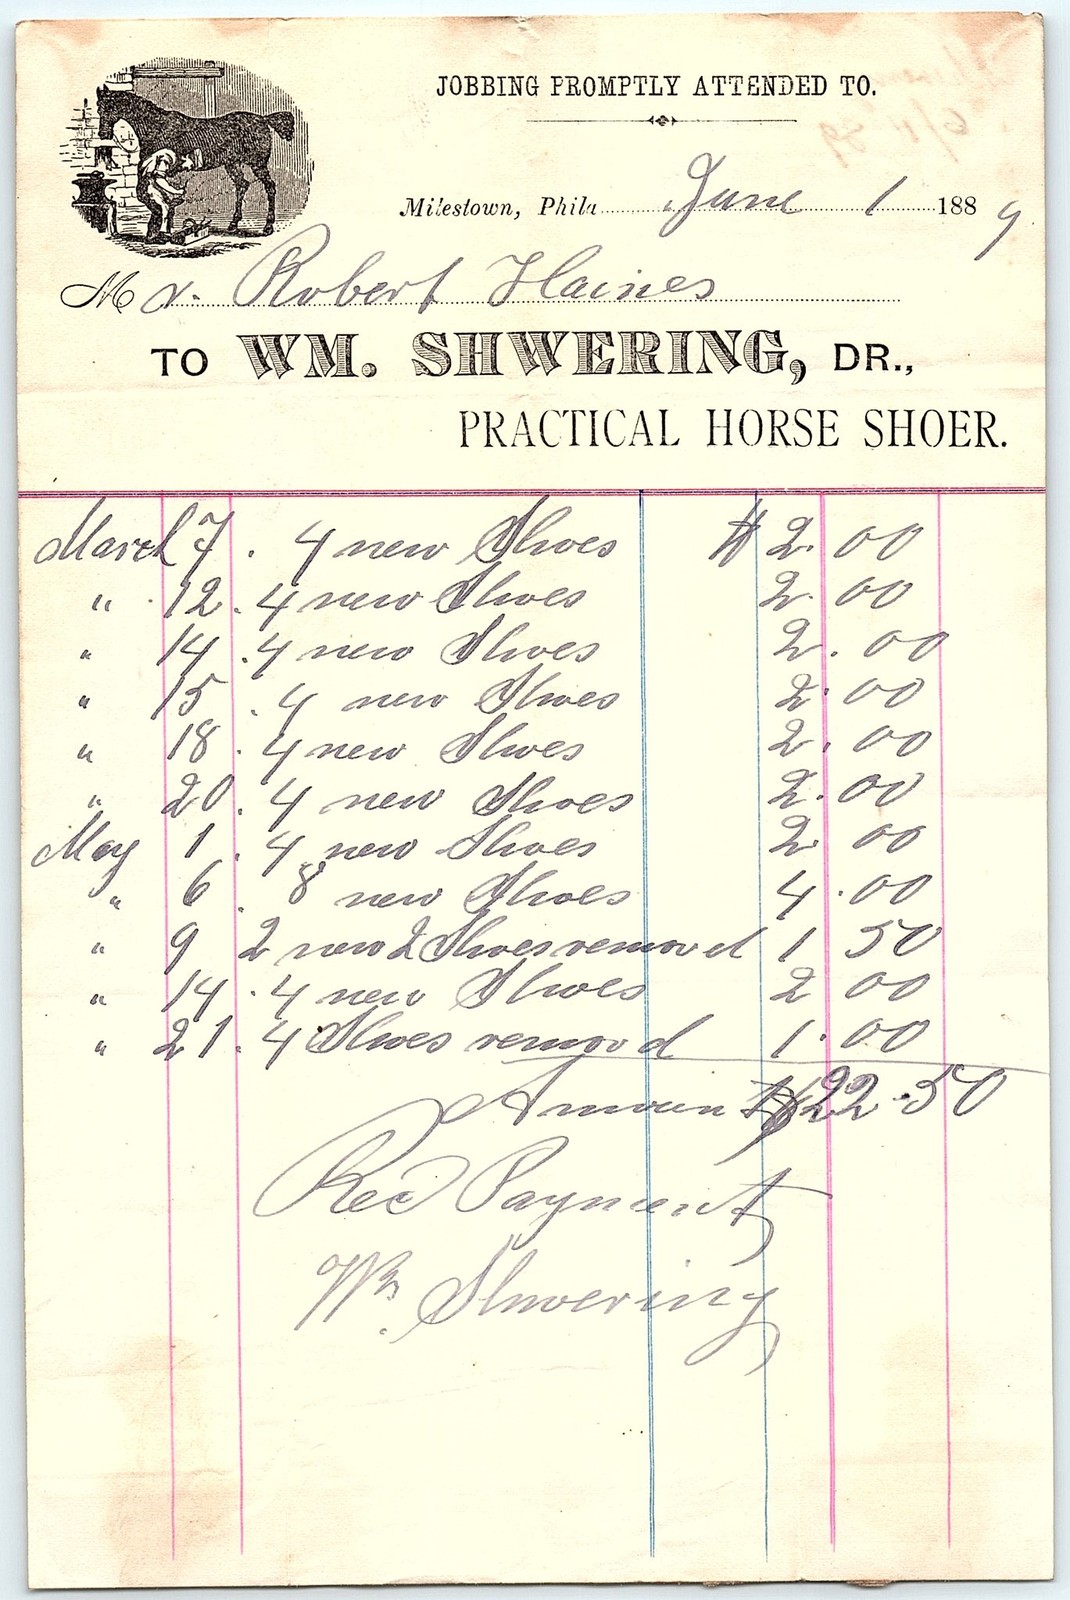 JOBBING PROMPTLY ATTENDED TO.
Milestown, Phila June 1 1889
Mr. Robert Haines
TO WM. SHWERING, DR.,
PRACTICAL HORSE SHOER.
March 7. 4 new Shoes $2.00
" 12. 4 new Shoes 2.00
" 14. 4 new Shoes 2.00
" 15. 4 new Shoes 2.00
" 18. 4 new Shoes 2.00
" 20. 4 new Shoes 2.00
May 1. 4 new Shoes 2 00
" 6. 8 new Shoes 4.00
" 9 2 new 2 Shoes removd 1 50
" 14. 4 new Shoes 2 00
" 21. 4 Shoes removd 1.00
Amount $22.50
Recd Payment
Wm. Shwering